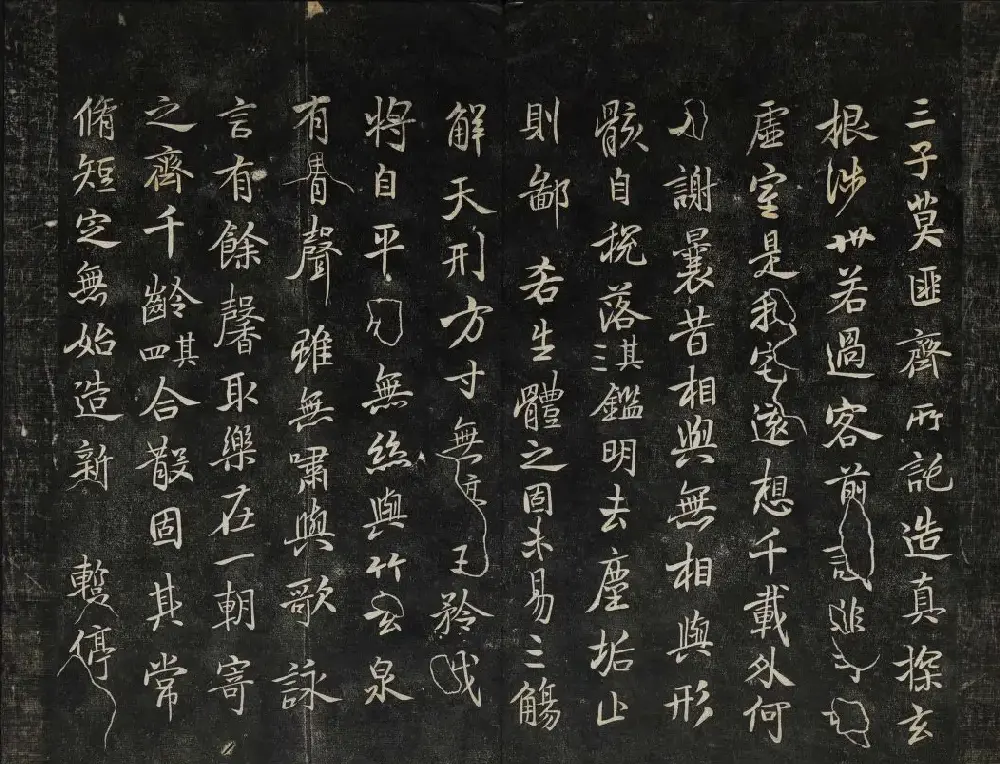 三子莫匪齊所託造真探玄
根涉世若過客前非
虛室是我宅遠想千載外何
謝曩昔相與無相與形
骸自稅落其三鑑明去塵垢止
則鄙吝生體之固未易三觴
解天刑方寸無矜
將自平無絲與竹玄泉
有聲雖無嘯與歌詠
言有餘馨取樂在一朝寄
之齊千齡其四合散固其常
脩短定無始造新暫停